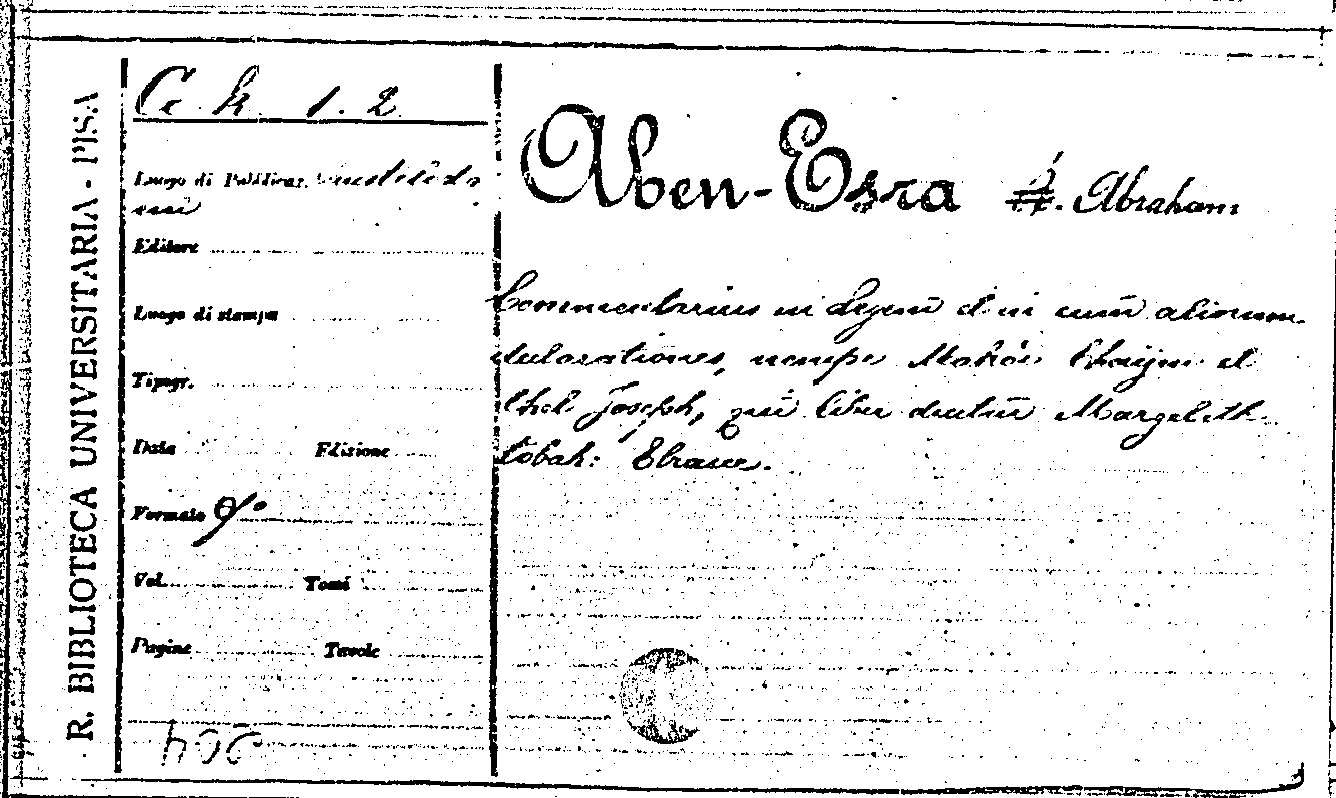 R. BIBLIOTECA UNIVERSITARIA - PISA
C. k. 1. 2
Luogo di Pubblicaz.
Editore
Luogo di stampa
Tipogr.
Data Edizione
Formato 8°
Vol. Tomi
Pagine Tavole
Aben-Esra R. Abraham
Commentarius in Legem et in eum aliorum
declarationes, nempe Mekór Chaijm et
Ohel Joseph, qui liber dicitur Margelith
tobah: Ebraice.